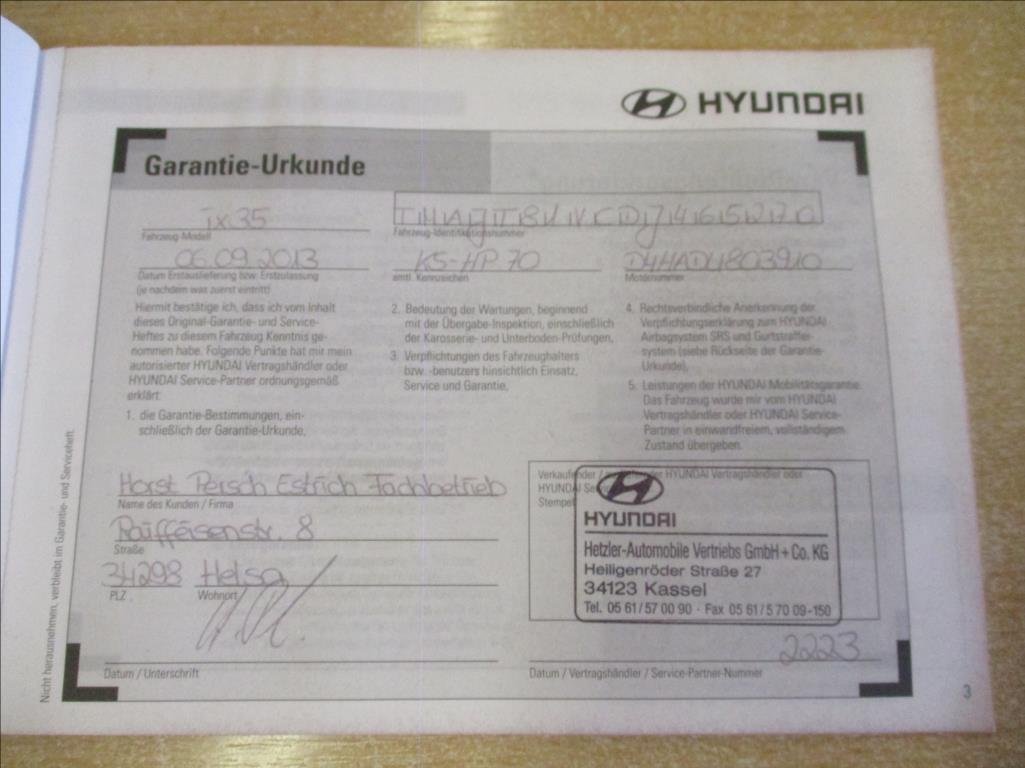 HYUNDAI
Garantie-Urkunde
ix35
Fahrzeug-Modell
TMAJT81VCDJ465270
Fahrzeug-Identifikationsnummer
06.09.2013
Datum Erstauslieferung bzw. Erstzulassung
(je nachdem was zuerst eintritt)
KS-HP 70
amtl. Kennzeichen
D4HADU803910
Motornummer
Hiermit bestätige ich, dass ich vom Inhalt
dieses Original-Garantie- und Service-
Heftes zu diesem Fahrzeug Kenntnis ge-
nommen habe. Folgende Punkte hat mir mein
autorisierter HYUNDAI Vertragshändler oder
HYUNDAI Service-Partner ordnungsgemäß
erklärt:
1. die Garantie-Bestimmungen, ein-
schließlich der Garantie-Urkunde.
2. Bedeutung der Wartungen, beginnend
mit der Übergabe-Inspektion, einschließlich
der Karosserie- und Unterboden-Prüfungen.
3. Verpflichtungen des Fahrzeughalters
bzw. -benutzers hinsichtlich Einsatz,
Service und Garantie.
4. Rechtsverbindliche Anerkennung der
Verpflichtungserklärung zum HYUNDAI
Airbagsystem SRS und Gurtstraffer-
system (siehe Rückseite der Garantie-
Urkunde).
5. Leistungen der HYUNDAI Mobilitätsgarantie.
Das Fahrzeug wurde mir vom HYUNDAI
Vertragshändler oder HYUNDAI Service-
Partner in einwandfreiem, vollständigem
Zustand übergeben.
Horst Persch Estrich Fachbetrieb
Name des Kunden / Firma
Raiffeisenstr. 8
Straße
34298 Helsa
PLZ Wohnort
Datum / Unterschrift
Verkaufender / HYUNDAI Vertragshändler oder
HYUNDAI
Stempel
HYUNDAI
Hetzler-Automobile Vertriebs GmbH + Co. KG
Heiligenröder Straße 27
34123 Kassel
Tel. 05 61/57 00 90 · Fax 05 61/5 70 09-150
2223
Datum / Vertragshändler / Service-Partner-Nummer
Nicht herausnehmen, verbleibt im Garantie- und Serviceheft.
3